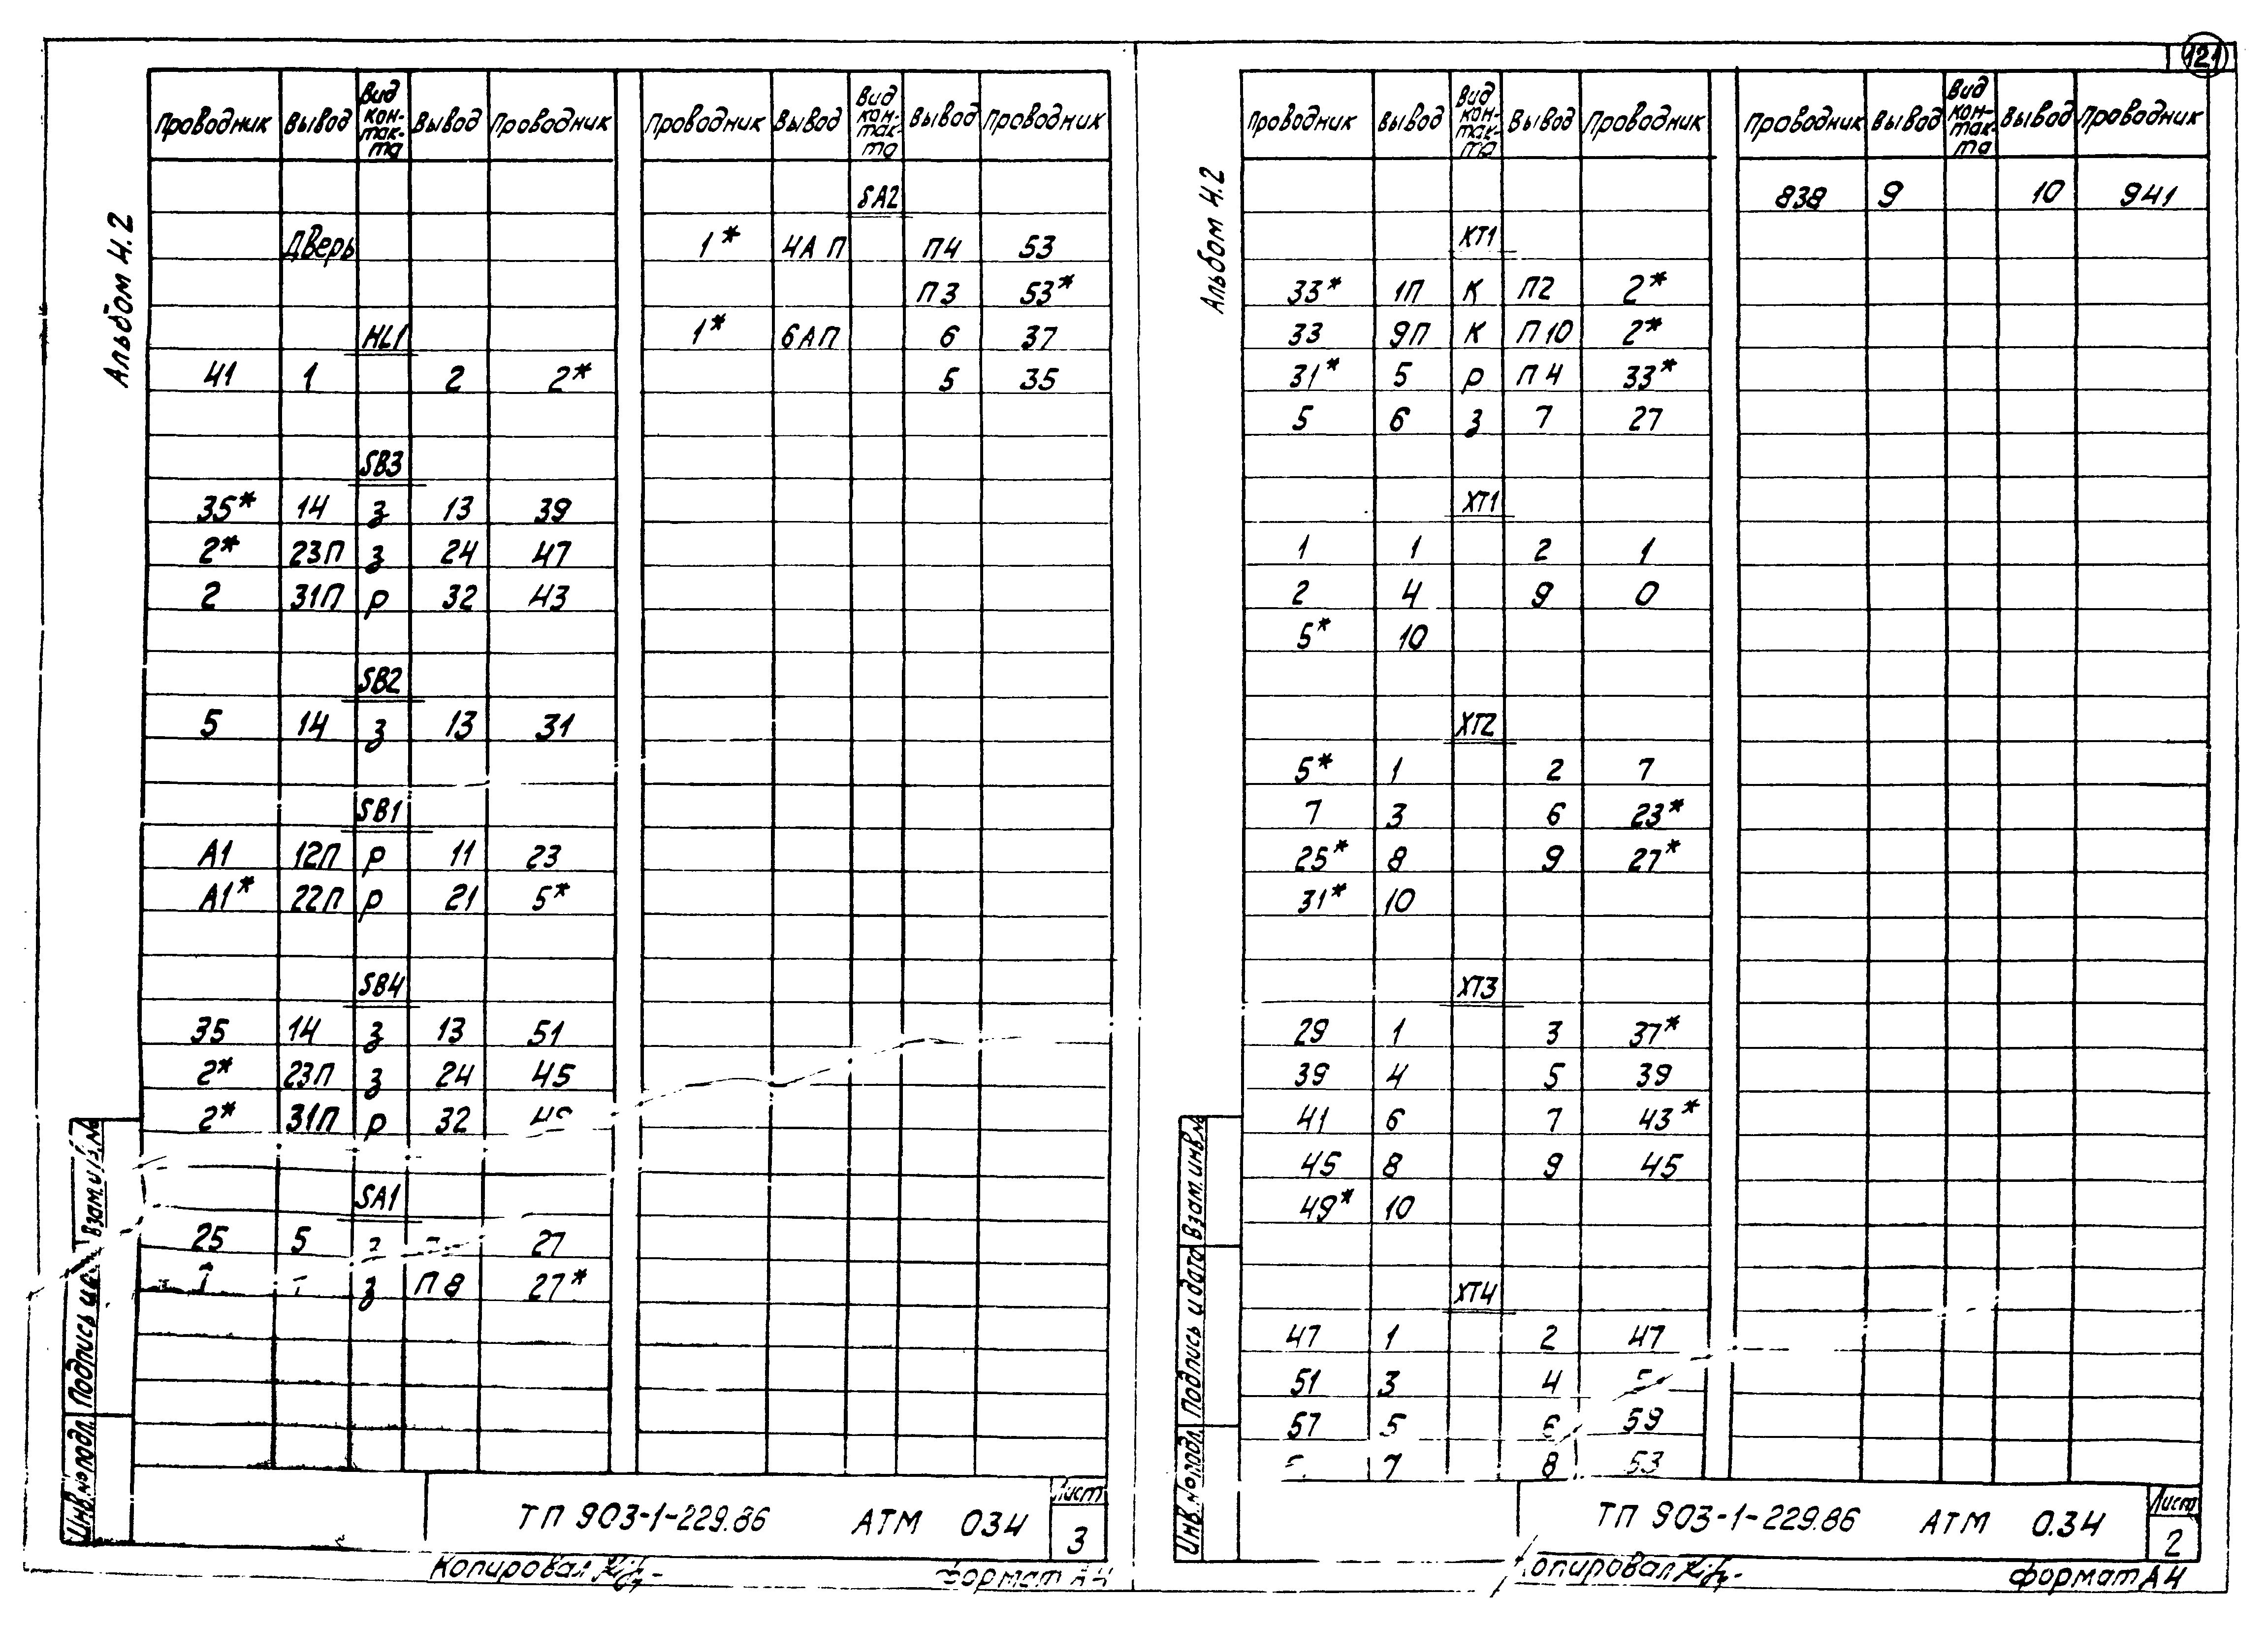 121
Альбом 4.2
Проводник Вывод Вид кон-так-та Вывод Проводник Проводник Вывод Вид кон-так-та Вывод Проводник
SA2
Дверь 1* 4А П П4 53
П3 53*
HL1 1* 6АП 6 37
41 1 2 2* 5 35
SB3
35* 14 з 13 39
2* 23П з 24 47
2 31П р 32 43
SB2
5 14 з 13 31
SB1
А1 12П р 11 23
А1* 22П р 21 5*
SB4
35 14 з 13 51
2* 23П з 24 45
2* 31П р 32
SA1
25 5 27
з П8 27*
Взам. Подпись Инв.№подл.
ТП 903-1-229.86 АТМ 034
Лист
3
Копировал
формат А4
Альбом 4.2
Проводник Вывод Вид кон-так-та Вывод Проводник Проводник Вывод Вид кон-так-та Вывод Проводник
838 9 10 941
КТ1
33* 1П К П2 2*
33 9П К П10 2*
31* 5 р П4 33*
5 6 з 7 27
XT1
1 1 2 1
2 4 9 0
5* 10
XT2
5* 1 2 7
7 3 6 23*
25* 8 9 27*
31* 10
XT3
29 1 3 37*
39 4 5 39
41 6 7 43*
45 8 9 45
49* 10
XT4
47 1 2 47
51 3 4
57 5 6 59
7 8 53
Взам.инв.№ Подпись и дата Инв.№подл.
ТП 903-1-229.86 АТМ 0.34
Листа
2
Копировал
формат А4